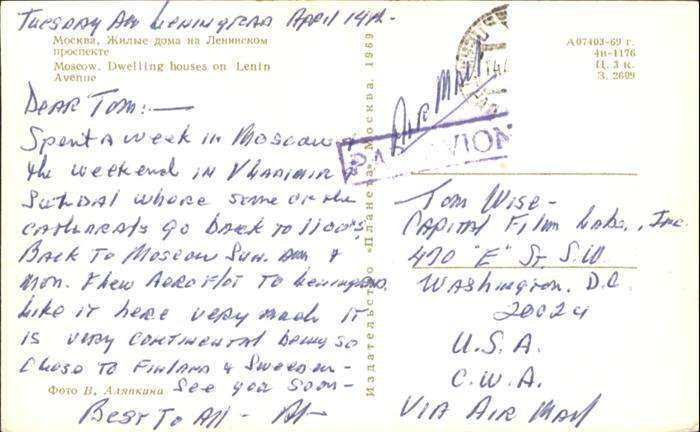 Tuesday AM Leningrad April 14th-
Москва. Жилые дома на Ленинском
проспекте
Moscow. Dwelling houses on Lenin
Avenue
Dear Tom:—
Spent a week in Moscow &
the weekend in Vladimir &
Suzdal where some of the
cathedrals go back to 1100's
Back to Moscow Sun. am &
Mon. Flew Aeroflot to Leningrad.
Like it here very much it
is very continental being so
close to Finland & Sweden-
See you soon-
Best to All -
Фото В. Аляпкина
Издательство «Планета» Москва. 1969
А07403-69 г.
4и-1176
Ц. 3 к.
З. 2609
Air Mail
PAR AVION
Tom Wise-
Capital Film Labs., Inc.
470 "E" St. S.W.
Washington, D.C.
20024
U.S.A.
C.W.A.
VIA AIR MAIL